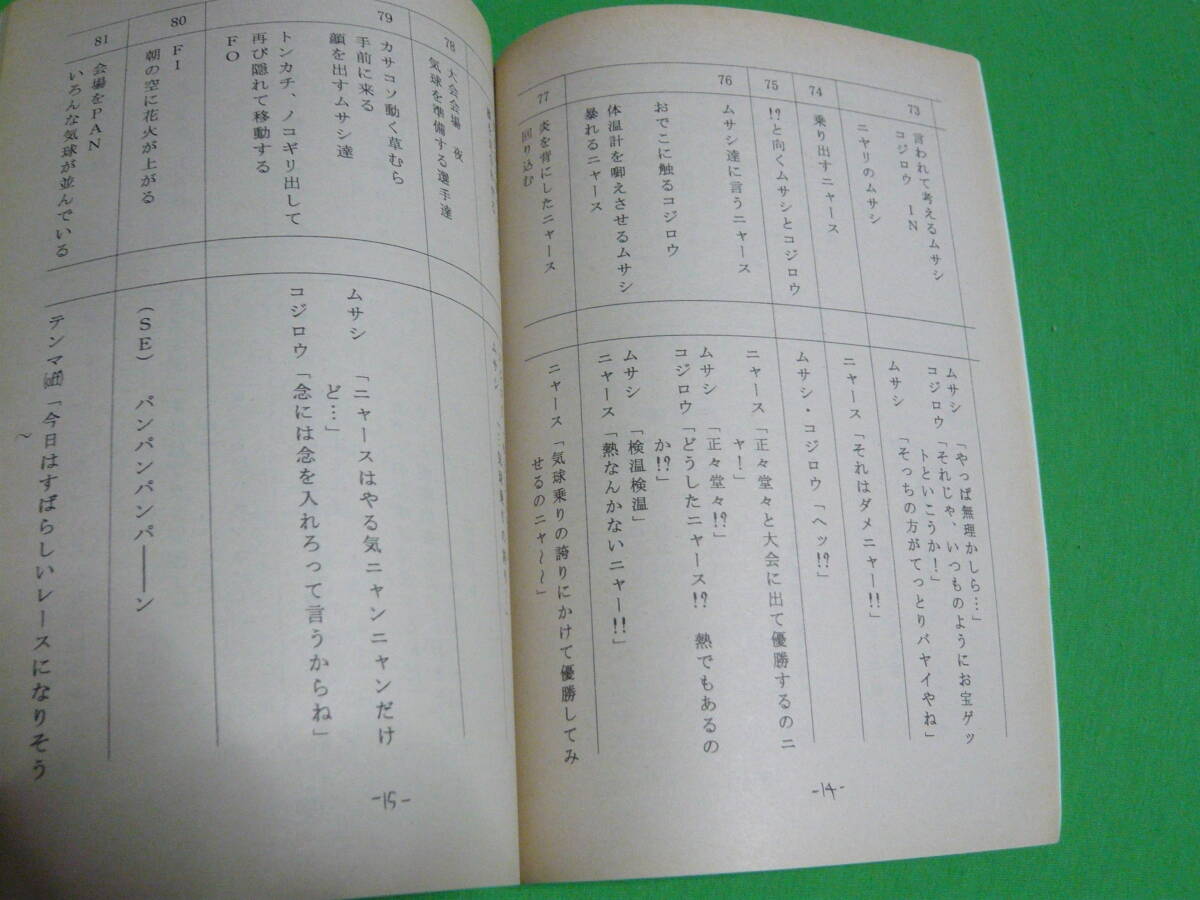 73
言われて考えるムサシ
コジロウ IN
ニヤリのムサシ
ムサシ 「やっぱ無理かしら…」
コジロウ「それじゃ、いつものようにお宝ゲッ
トといこうか!」
ムサシ 「そっちの方がてっとりバヤイやね」
74
乗り出すニャース
ニャース「それはダメニャー!!」
75
!?と向くムサシとコジロウ
ムサシ・コジロウ「ヘッ!?」
76
ムサシ達に言うニャース
おでこに触るコジロウ
体温計を啣えさせるムサシ
暴れるニャース
ニャース「正々堂々と大会に出て優勝するのニ
ャ!」
ムサシ 「正々堂々!?」
コジロウ「どうしたニャース!? 熱でもあるの
か!?」
ムサシ 「検温検温」
ニャース「熱なんかないニャー!!」
77
炎を背にしたニャース
回り込む
ニャース「気球乗りの誇りにかけて優勝してみ
せるのニャ〜〜」
-14-
78
大会会場 夜
気球を準備する選手達
79
カサコソ動く草むら
手前に来る
顔を出すムサシ達
トンカチ、ノコギリ出して
再び隠れて移動する
FO
ムサシ 「ニャースはやる気ニャンニャンだけ
ど…」
コジロウ「念には念を入れろって言うからね」
80
FI
朝の空に花火が上がる
(SE) パンパンパンパ――ン
81
会場をPAN
いろんな気球が並んでいる
テンマ「今日はすばらしいレースになりそう
〜
-15-